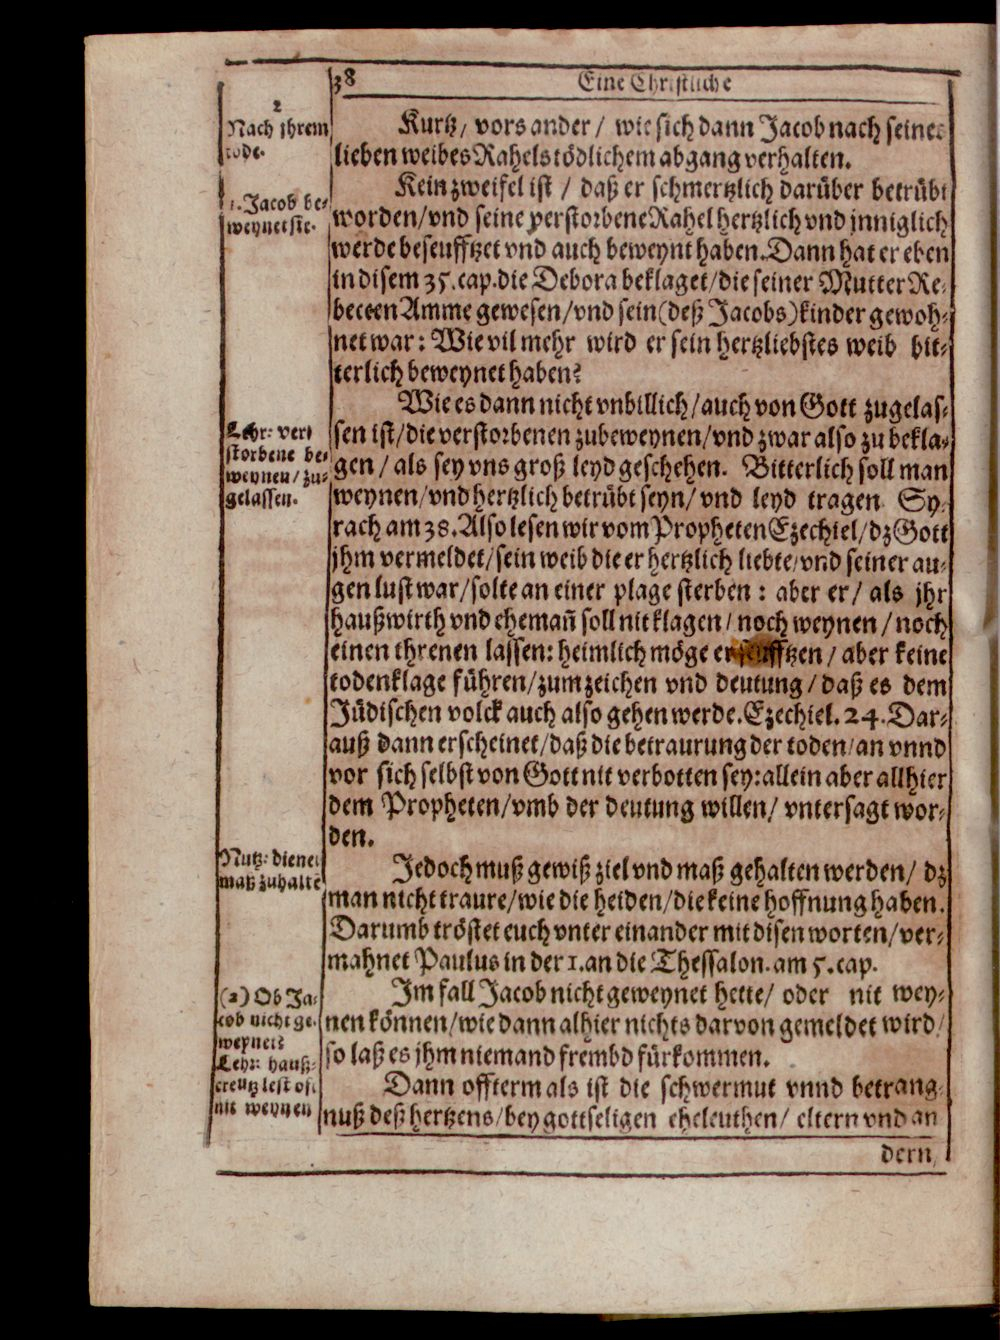 38
Eine Christliche
2
Nach jhrem
tode.
Kurtz/ vors ander/ wie sich dann Jacob nach seiner
lieben weibes Rahels tödlichem abgang verhalten.
1. Jacob be-
weynet sie.
Kein zweifel ist / daß er schmertzlich darüber betrübt
worden/vnd seine verstorbene Rahel hertzlich vnd jnniglich
werde beseufftzet vnd auch beweynt haben. Dann hat er eben
in disem 35. cap. die Debora beklaget/die seiner Mutter Re-
becten Amme gewesen/vnd sein (deß Jacobs) kinder gewoh-
net war: Wie vil mehr wird er sein hertzliebstes weib bit-
terlich beweynet haben?
Lehr: ver-
storbene be-
weynen/ zu-
gelassen.
Wie es dann nicht vnbillich/auch von Gott zugelas-
sen ist/die verstorbenen zubeweynen/vnd zwar also zu bekla-
gen/ als sey vns groß leyd geschehen. Bitterlich soll man
weynen/vnd hertzlich betrübt seyn/ vnd leyd tragen Sy-
rach am 38. Also lesen wir vom Propheten Ezechiel/dz Gott
jhm vermeldet/sein weib die er hertzlich liebte/vnd seiner au-
gen lust war/solte an einer plage sterben: aber er/ als jhr
haußwirth vnd ehemañ soll nit klagen/ noch weynen/ noch
einen threnen lassen: heimlich möge er seufftzen/ aber keine
todenklage führen/zum zeichen vnd deutung/daß es dem
Jüdischen volck auch also gehen werde. Ezechiel. 24. Dar-
auß dann erscheinet/daß die betraurung der toden/an vnnd
vor sich selbst von Gott nit verbotten sey: allein aber allhier
dem Propheten/vmb der deutung willen/ vntersagt wor-
den.
Nutz: dienet
maß zuhaltē
Jedoch muß gewiß ziel vnd maß gehalten werden/ dz
man nicht traure/wie die heiden/die keine hoffnung haben.
Darumb tröstet euch vnter einander mit disen worten/ver-
mahnet Paulus in der 1. an die Thessalon. am 5. cap.
(2) Ob Ja-
cob nicht ge-
weynet?
Lehr: hauß-
creutz lest oft
nit weynen
Im fall Jacob nicht geweynet hette/ oder nit wey-
nen können/wie dann alhier nichts darvon gemeldet wird/
so laß es jhm niemand frembd fürkommen.
Dann offtermals ist die schwermut vnnd betrang-
nuß deß hertzens/bey gottseligen eheleuthen/ eltern vnd an
dern,